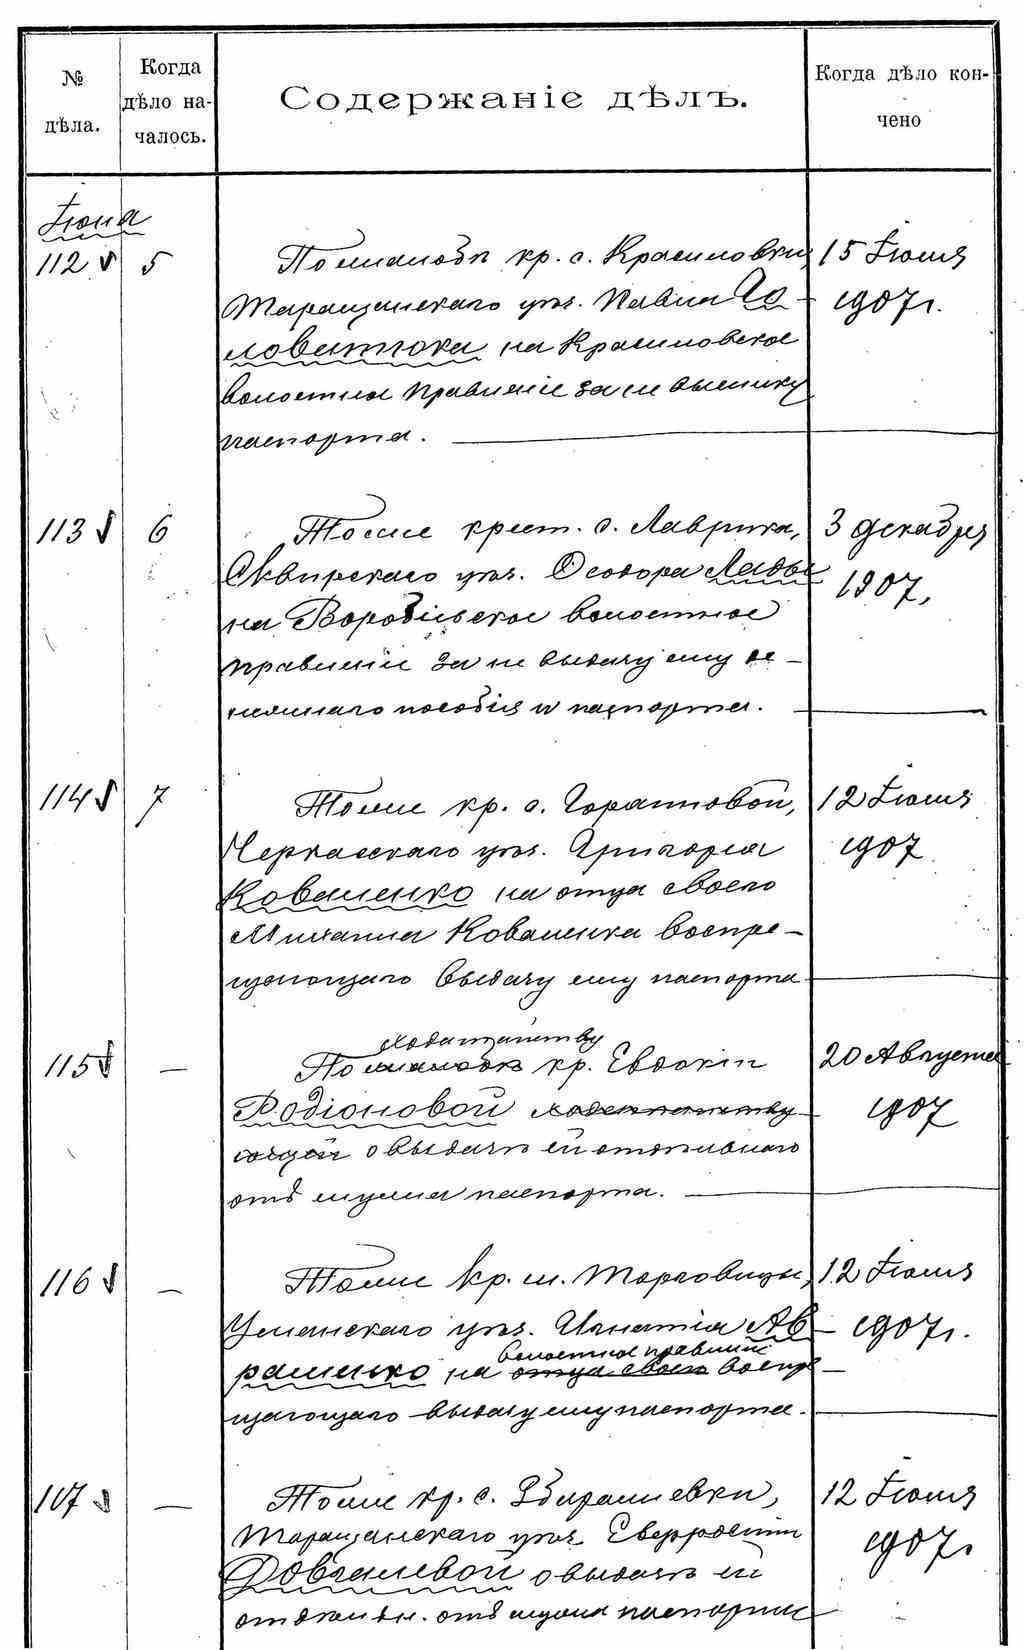 № дѣла.
Когда дѣло началось.
Содержаніе дѣлъ.
Когда дѣло кончено
Іюня
112 5 По жалобѣ кр. с. Красиловки, 15 Іюля
Таращанскаго уѣз. Павла Го- 1907 г.
ловатюка на Красиловское
волостное правленіе за не высылку
паспорта.
113 6 Тоже крест. с. Лаврика, 3 декабря
Сквирскаго уѣз. Ѳеодора Лады 1907,
на Воробіевское волостное
правленіе за не выдачу ему де-
нежнаго пособія и паспорта.
114 7 Тоже кр. с. 12 Іюля
Черкасскаго уѣз. Григорія 1907
Коваленко на отца своего
Михаила Коваленка воспре-
щающаго выдачу ему паспорта
ходатайству
115 — По жалобѣ кр. Евдокіи 20 Августа
Родіоновой ходатайству 1907
ющей о выдачѣ ей отдѣльнаго
отъ мужа паспорта.
116 — Тоже кр. м. Торговицы, 12 Іюля
Уманскаго уѣз. Игнатія Ав- 1907 г.
волостное правленіе
раменко на отца своего воспре-
щающаго выдачу ему паспорта.
107 — Тоже кр. с. 12 Іюля
Таращанскаго уѣз. Евфросиніи 1907 г
Довгалевой о выдачѣ ей
отдѣльн. отъ мужа паспорта